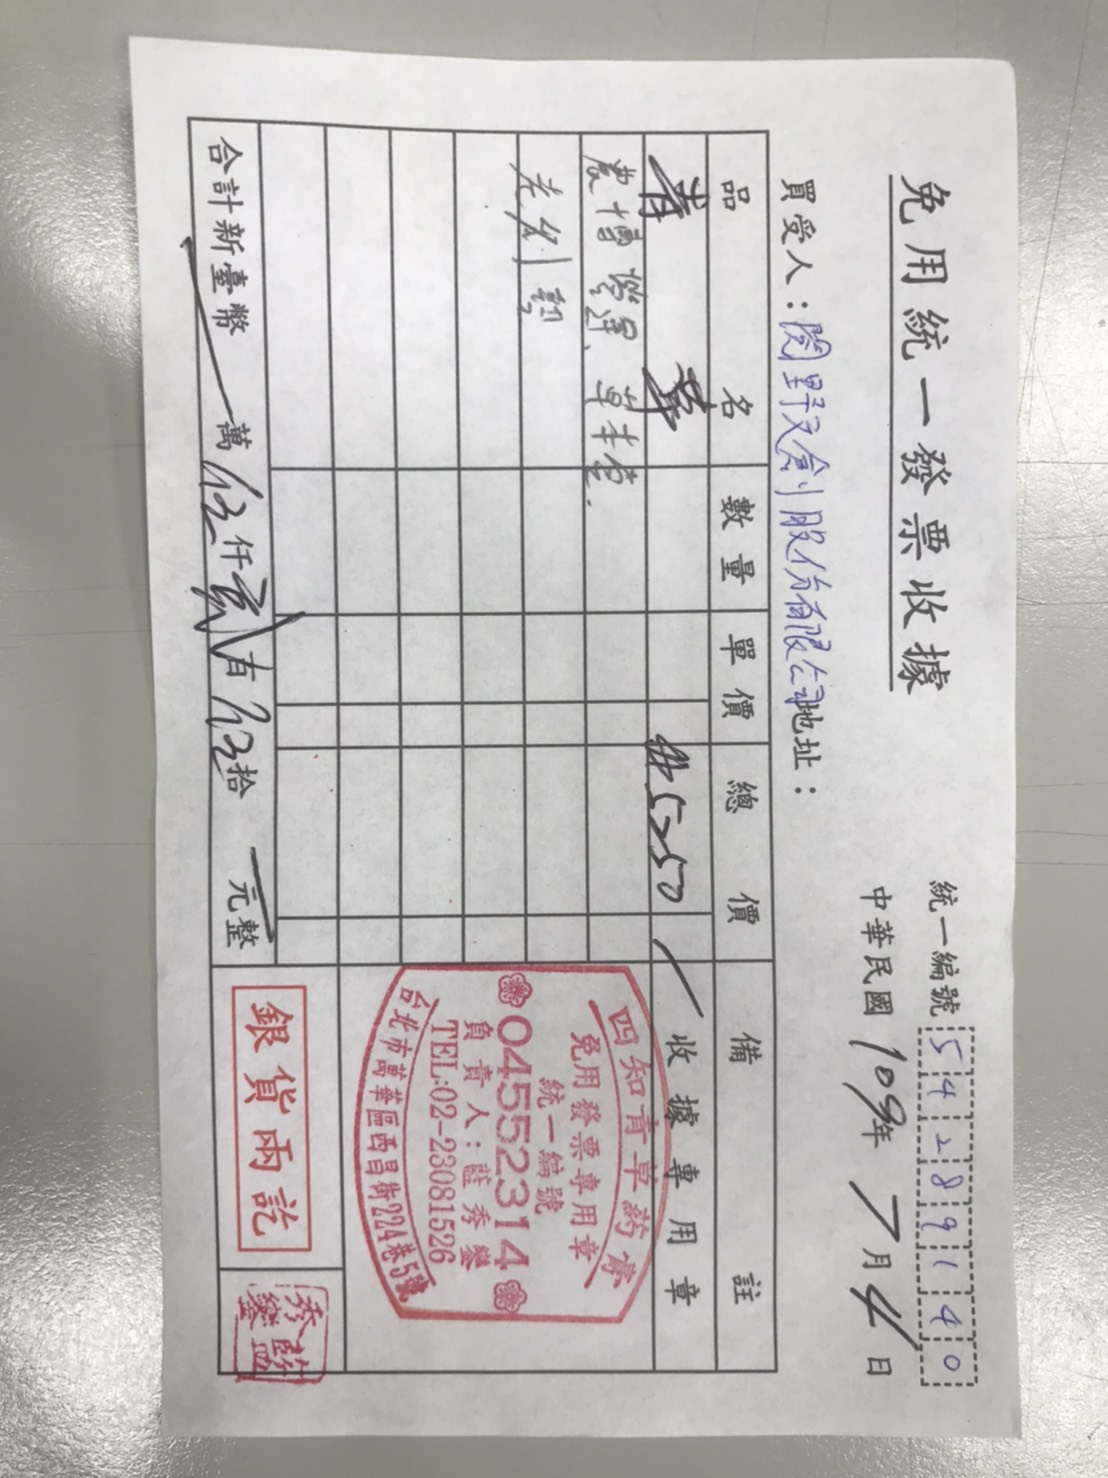 免用統一發票收據
統一編號 54289140
中華民國 109年 7月 4日
買受人：閱野文創股份有限公司 地址：
品名 數量 單價 總價 備註
青草 #5250 收據專用章
農博營運、草本堂、
老劉
四知青草葯膏
免用發票專用章
統一編號
04552314
負責人：藍秀鑾
TEL:02-23081526
台北市萬華區西昌街224巷5號
合計新臺幣 萬伍仟貳百伍拾 元整
銀貨兩訖
藍秀鑾